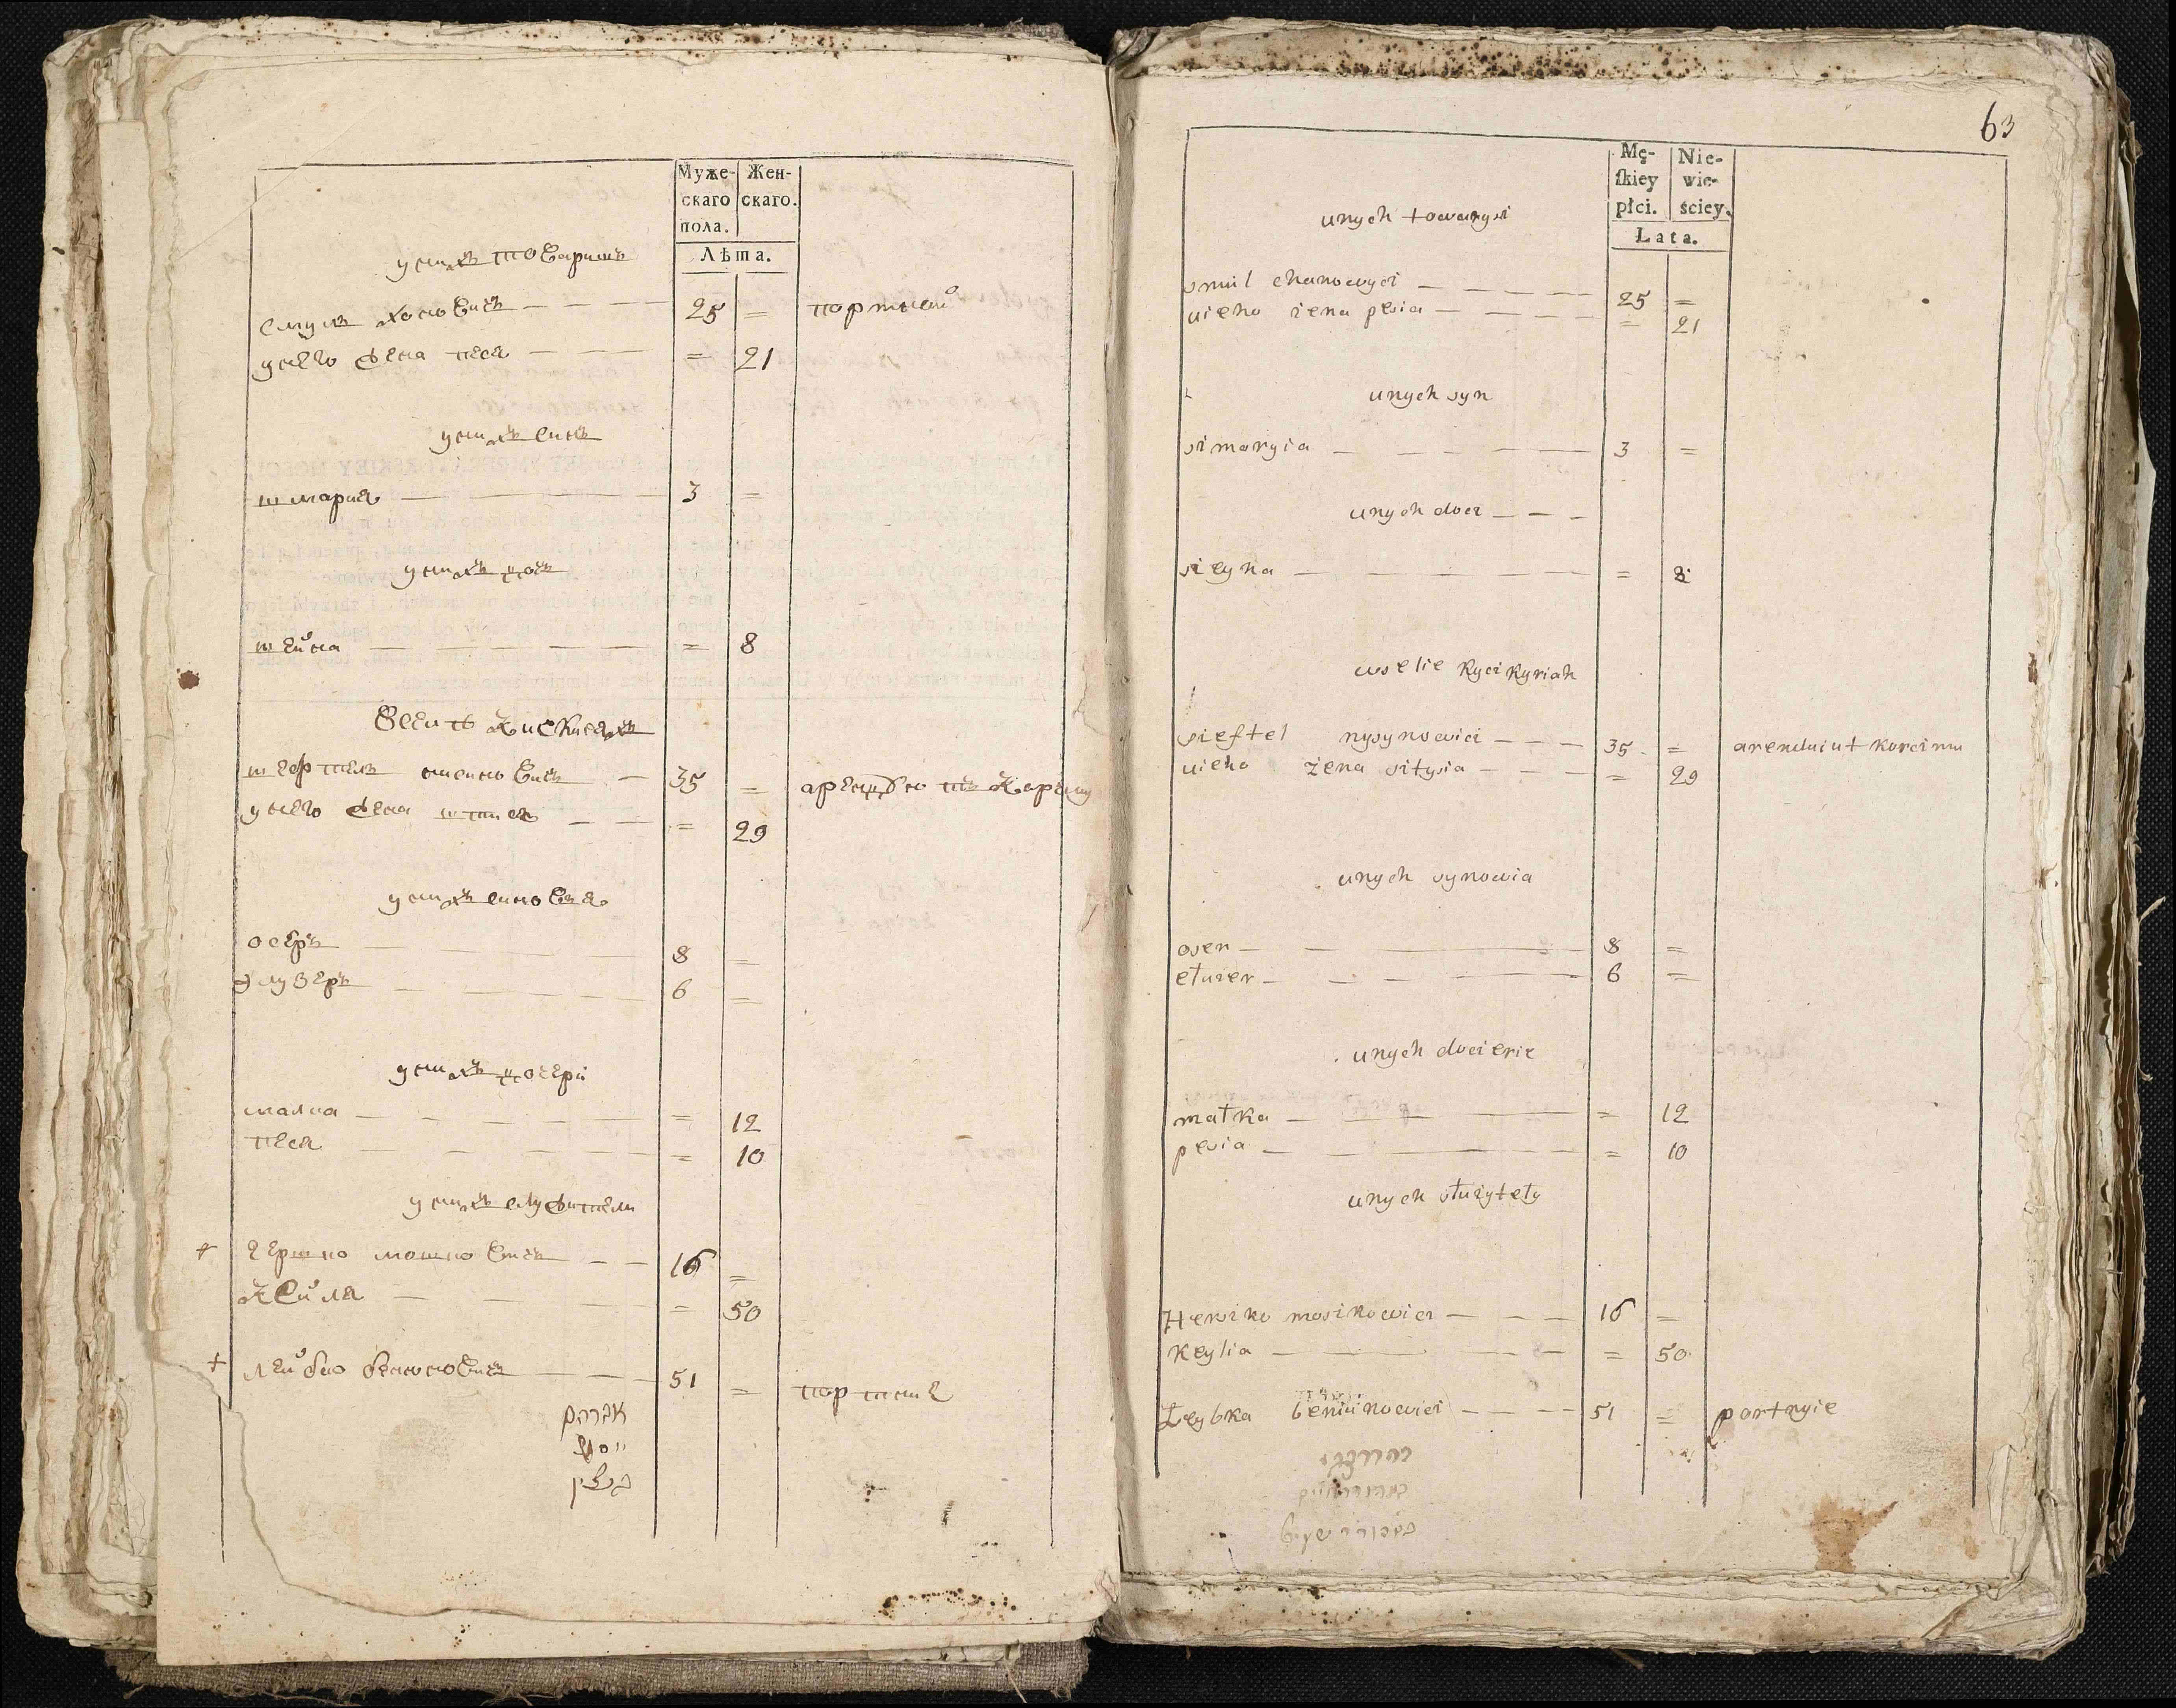 Муже-
скаго
пола.
Жен-
скаго.
Лѣта.
у нихъ товаришъ
Смуль хоновичъ 25 = портной
у него жена песя = 21
у нихъ синъ
шмария 3 =
у нихъ дочъ
шейна = 8
Всели
шефтель нисиновичъ 35 =
у него жена = 29
у нихъ синовья
осеръ 8 =
элузеръ 6 =
у нихъ дочери
малка = 12
песя = 10
у нихъ служители
гершко мошковичъ 16 =
Кейля = 50
лейбко бенюновичъ 51 = портние
אברהם
יוסף
63
Mę-
ſkiey
płci.
Nie-
wie-
ściey.
Lata.
unych towarysi
smul chanowyci 25 =
uieho zena pesia = 21
unych syn
simaryia 3 =
unych doci
sieyna = 8
wselie kycikyriah
sieftel nysynowici 35 = arenduiut karcimu
uieho zena sitysia = 29
unych synowia
oser 8 =
etuzer 6 =
unych docierie
matka = 12
pesia = 10
unych stuzytety
Hersiko mosikowici 16 =
keylia = 50
Leybka beniunowici 51 = portnyie